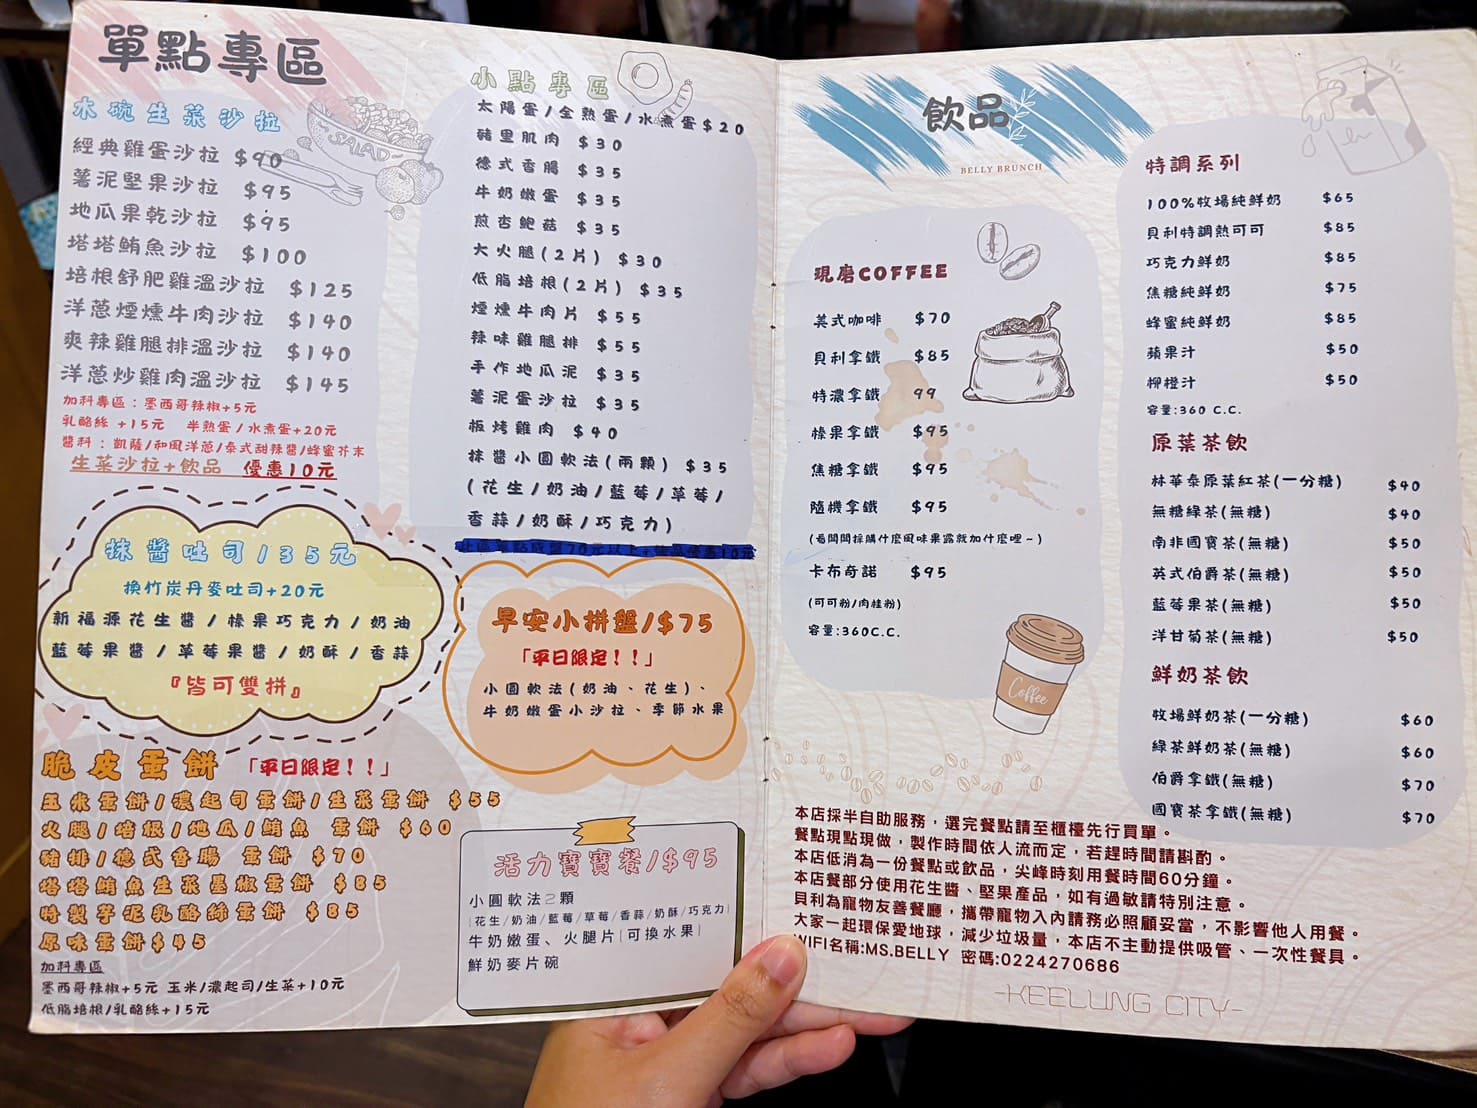 單點專區
木碗生菜沙拉
SALAD
經典雞蛋沙拉 $90
薯泥堅果沙拉 $95
地瓜果乾沙拉 $95
塔塔鮪魚沙拉 $100
培根舒肥雞溫沙拉 $125
洋蔥煙燻牛肉沙拉 $140
爽辣雞腿排溫沙拉 $140
洋蔥炒雞肉溫沙拉 $145
加料專區：墨西哥辣椒+5元
乳酪絲 +15元 半熟蛋/水煮蛋+20元
醬料：凱薩/和風洋蔥/泰式甜辣醬/蜂蜜芥末
生菜沙拉+飲品 優惠10元
抹醬吐司/35元
換竹炭丹麥吐司+20元
新福源花生醬/榛果巧克力/奶油
藍莓果醬/草莓果醬/奶酥/香蒜
『皆可雙拼』
脆皮蛋餅 「平日限定！！」
玉米蛋餅/濃起司蛋餅/生菜蛋餅 $55
火腿/培根/地瓜/鮪魚 蛋餅 $60
豬排/德式香腸 蛋餅 $70
塔塔鮪魚生菜墨椒蛋餅 $85
特製芋泥乳酪絲蛋餅 $85
原味蛋餅$45
加料專區
墨西哥辣椒+5元 玉米/濃起司/生菜+10元
低脂培根/乳酪絲+15元
小點專區
太陽蛋/全熟蛋/水煮蛋$20
豬里肌肉 $30
德式香腸 $35
牛奶嫩蛋 $35
煎杏鮑菇 $35
大火腿(2片) $30
低脂培根(2片) $35
煙燻牛肉片 $55
辣味雞腿排 $55
手作地瓜泥 $35
薯泥蛋沙拉 $35
板烤雞肉 $40
抹醬小圓軟法(兩顆) $35
(花生/奶油/藍莓/草莓/
香蒜/奶酥/巧克力)
早安小拼盤/$75
「平日限定！！」
小圓軟法(奶油、花生)、
牛奶嫩蛋小沙拉、季節水果
活力寶寶餐/$95
小圓軟法2顆
|花生/奶油/藍莓/草莓/香蒜/奶酥/巧克力|
牛奶嫩蛋、火腿片|可換水果|
鮮奶麥片碗
飲品
BELLY BRUNCH
現磨COFFEE
美式咖啡 $70
貝利拿鐵 $85
特濃拿鐵 99
榛果拿鐵 $95
焦糖拿鐵 $95
隨機拿鐵 $95
(看闆闆採購什麼風味果露就加什麼哩~)
卡布奇諾 $95
(可可粉/肉桂粉)
容量:360C.C.
Coffee
特調系列
100%牧場純鮮奶 $65
貝利特調熱可可 $85
巧克力鮮奶 $85
焦糖純鮮奶 $75
蜂蜜純鮮奶 $85
蘋果汁 $50
柳橙汁 $50
容量:360 C.C.
原葉茶飲
林華泰原葉紅茶(一分糖) $40
無糖綠茶(無糖) $40
南非國寶茶(無糖) $50
英式伯爵茶(無糖) $50
藍莓果茶(無糖) $50
洋甘菊茶(無糖) $50
鮮奶茶飲
牧場鮮奶茶(一分糖) $60
綠茶鮮奶茶(無糖) $60
伯爵拿鐵(無糖) $70
國寶茶拿鐵(無糖) $70
本店採半自助服務，選完餐點請至櫃檯先行買單。
餐點現點現做，製作時間依人流而定，若趕時間請斟酌。
本店低消為一份餐點或飲品，尖峰時刻用餐時間60分鐘。
本店餐部分使用花生醬、堅果產品，如有過敏請特別注意。
貝利為寵物友善餐廳，攜帶寵物入內請務必照顧妥當，不影響他人用餐。
大家一起環保愛地球，減少垃圾量，本店不主動提供吸管、一次性餐具。
WIFI名稱:MS.BELLY 密碼:0224270686
-KEELUNG CITY-